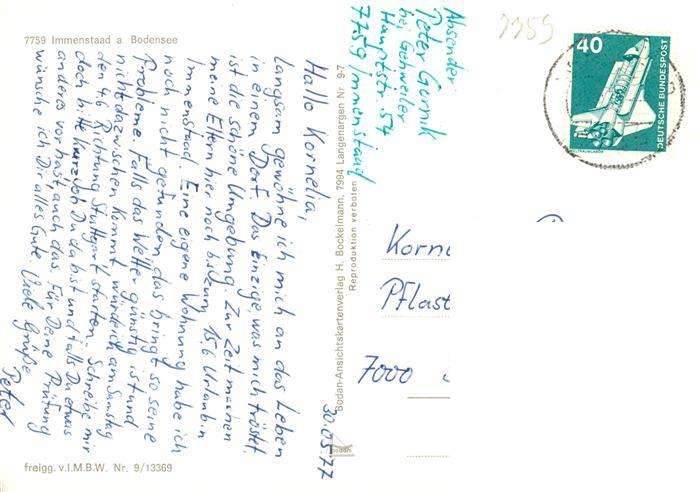 7759 Immenstaad a. Bodensee
30.05.77
Hallo Kornelia,
langsam gewöhne ich mich an das Leben
in einem Dorf. Das Einzige, was mich tröstet,
ist die schöne Umgebung. Zur Zeit machen
meine Eltern hier noch bis zum 15.6 Urlaub in
Immenstaad. Eine eigene Wohnung habe ich
noch nicht gefunden, das bringt so seine
Probleme. Falls das Wetter günstig ist und
nichts dazwischen kommt würde ich am Samstag
den 4.6 Richtung Stuttgart starten. Schreibe mir
doch bitte kurz, ob Du da bist und falls Du etwas
anderes vorhast, auch das. Für Deine Prüfung
wünsche ich Dir alles Gute. Viele Grüße
Peter
freigg. v. I.M.B.W. Nr. 9/13369
Bodan-Ansichtskartenverlag H. Bockelmann, 7994 Langenargen Nr. 9-7
Reproduktion verboten
Absender:
Peter Gornik
bei Gehweiler
Hauptstr. 54
7759 Immenstaad
7759
40
DEUTSCHE BUNDESPOST
Korne
Pflast
7000